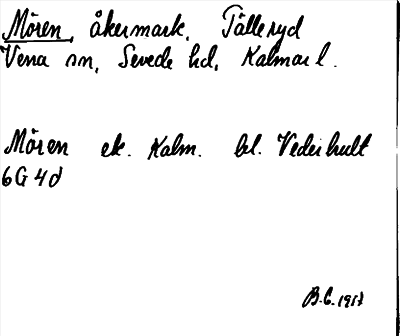 Mören, åkermark, Tälleryd
Vena sn, Sevede hd, Kalmar l.
Mören ek. Kalm. bl. Vederhult
6G4d
B.C. 1917